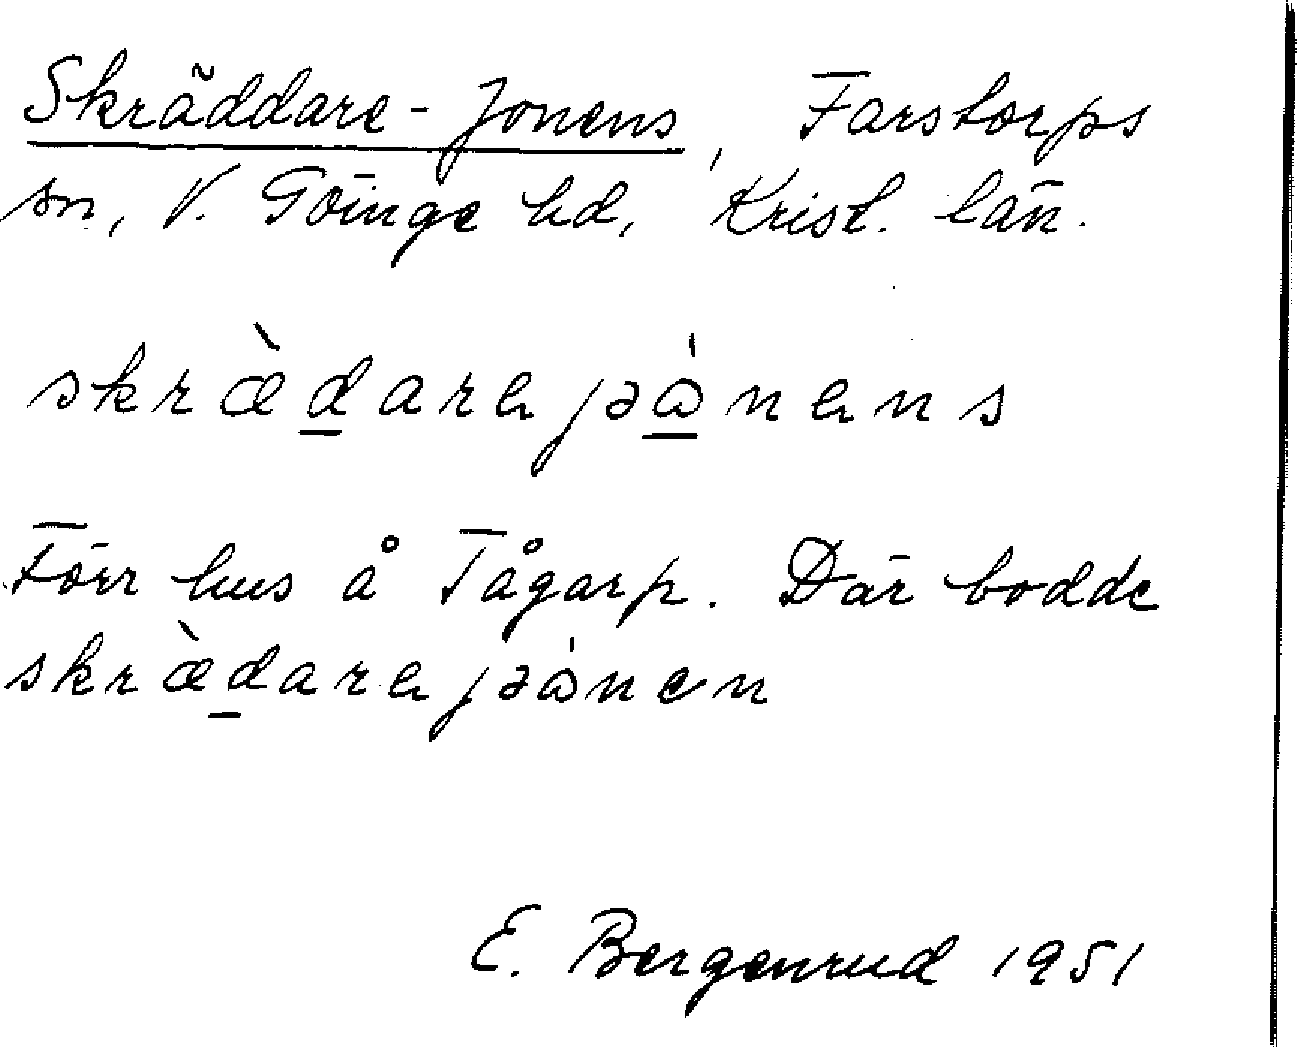 Skräddare-Jonens, Farstorps
sn, V. Göinge hd, Krist. län.
skræ̀dare jəånens
Förr hus å Tågarp. Där bodde
skræ̀dare jəånen
E. Bergenrud 1951